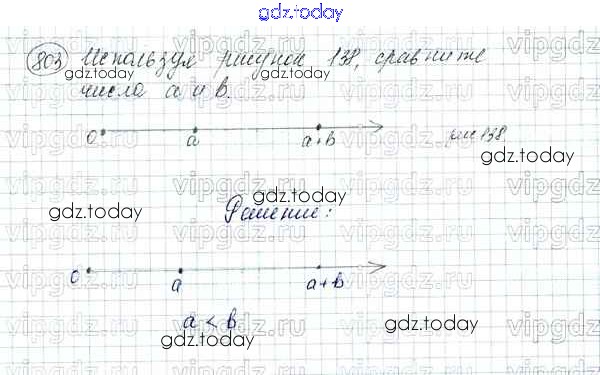 gdz.today
803 Используя рисунок 138, сравните
gdz.today gdz.today
числа a и b.
0 a a+b рис 138
gdz.today
gdz.today
Решение:
0 a a+b
a < b
gdz.today gdz.today
vipgdz.ru